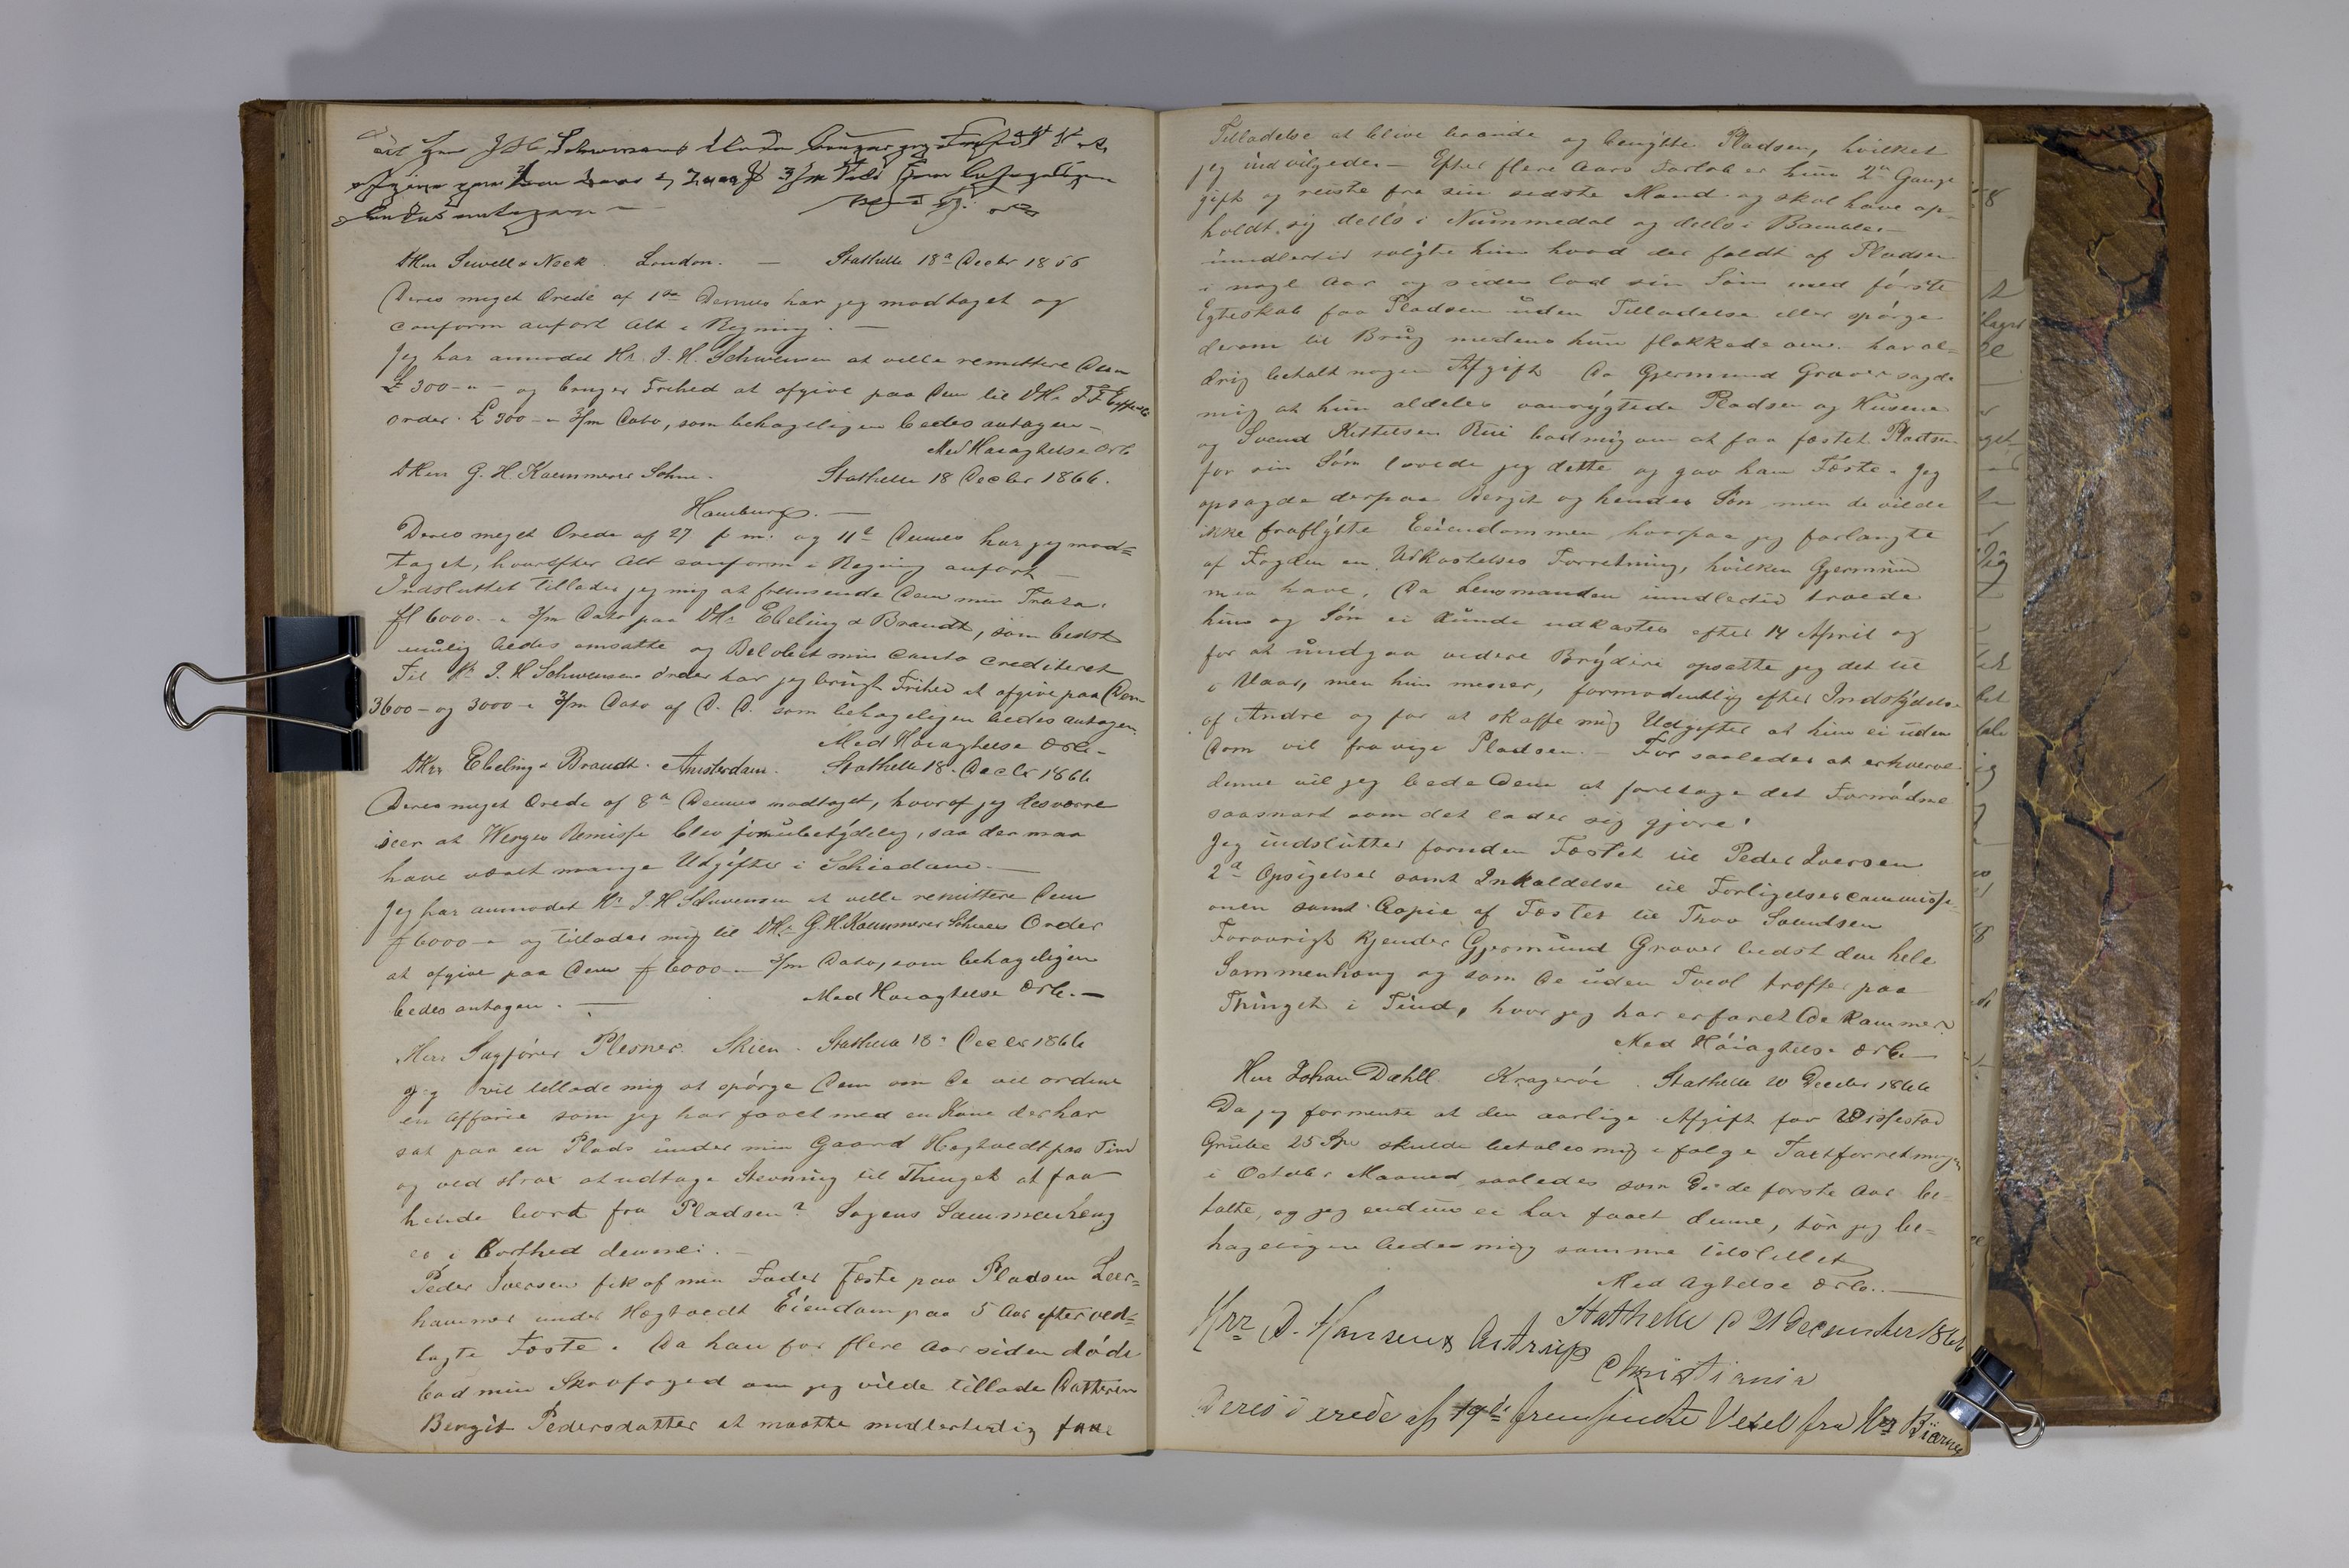 DHrr Sewell & Neck. London. — Stathelle 18a Decbr 1866
Deres meget Ærede af 1ste Dennes har jeg modtaget og
conform anført Alt i Regning. —
Jeg har anmodet Hr. J. H. Schwensen at ville remittere Dem
£ 300 - " - og bruger Frihed at afgive paa Dem til DHr
order. £ 300 - " 3/m Dato, som behageligen bedes antagen —
Med Høiagtelse ærb.
DHrr G. H. Kaemmerer Sohne. Stathelle 18 Decbr 1866.
Hamburg. —
Deres meget Ærede af 27 f m. og 11te Dennes har jeg mod=
taget, hvorefter Alt conform i Regning anført —
Indsluttet tillader jeg mig at fremsende Dem min Tratta.
fl 6000. " 3/m Dato paa DHr Ebeling & Brandt, som bedst
mulig bedes omsatte og Beløbet min Conto crediteret
Til Hr. J. H Schwensens order har jeg brugt Frihed at afgive paa Dem
3600 - og 3000 - " 3/m Dato af D. D. som behageligen bedes antagen.
Med Høiagtelse ærb. -
DHrr Ebeling & Brandt. Amsterdam. Stathelle 18. Decbr 1866
Deres meget Ærede af 8de Dennes modtaget, hvoraf jeg desværre
seer at Werges Remisse blev ubetydelig, saa der maa
have været mange Udgifter i Schiedam. —
Jeg har anmodet Hr. J. H Schwensen at ville remittere Dem
f 6000 - " og tillader mig til DHr. G. H. Kaemmerer Sohnes Order
at afgive paa Dem f 6000 - 3/m Dato, som behageligen
bedes antagen. — Med Høiagtelse ærb. —
Herr Sagfører Plesner. Skien. Stathelle 18. Decbr 1866
Jeg vil tillade mig at spørge Dem om De vil ordne
en Affaire som jeg har faaet med en Kone der har
sat paa en Plads under min Gaard Høgtvedt paa Tind
og ved strax at udtage Stevning til Thinget at faa
hende bort fra Pladsen? Sagens Sammenheng
er i Korthed denne: —
Peder Iversen fik af min Fader Fæste paa Pladsen Leer=
hammer under Høgtvedt Eiendom paa 5 Aar efter ved=
lagte Fæste. Da han for flere Aar siden døde
bad min Skovfoged om jeg vilde tillade Datteren
Bergit Pedersdatter at maatte midlertidig faae
Tilladelse at blive boende og benytte Pladsen, hvilket
jeg indvilgede. — Efter flere Aars Forløb er hun 2den Gange
gift og reiste fra sin sidste Mand og skal have op-
holdt sig dells i Nummedal og dells i Bamble. —
imidlertid solgte hun hvad der faldt af Pladsen
i nogle Aar og siden lod sin Søn med første
Egteskab faa Pladsen uden Tilladelse eller spørge
derom til Brug medens hun flakkede om. har al=
drig betalt nogen Afgift Da Gjermund Graver sagde
mig at hun aldeles vanrygtede Pladsen og Husene
og Svend Kittelsen Rui bad mig om at faa fæstet Pladsen
for sin Søn lovede jeg dette og gav ham Fæste. Jeg
opsagde derpaa Bergit og hendes Søn men de vilde
ikke fraflytte Eiendommen, hvorpaa jeg forlangte
af Fogden en Udkastelses Forretning, hvilken Gjermund
maa have. Da Lensmanden imidlertid troede
hun og Søn ei kunde udkastes efter 14 April og
for at undgaa videre Bryderi opsatte jeg det til
i Vaar, men hun mener, formodentlig efter Indskydelse
af Andre og for at skaffe mig Udgifter at hun ei uden
Dom vil fravige Pladsen. — For saaledes at erhverve
denne vil jeg bede Dem at foretage det Fornødne
saasnart som det lader sig gjøre.
Jeg indslutter foruden Fæstet til Peder Iversen
2de Opsigelser samt Inkaldelse til Forligelsescommissi-
onen samt Copie af Fæstet til Thov Svendsen
Forøvrigt kjender Gjermund Graver bedst den hele
Sammenhang og som De uden Tvivl træffer paa
Thinget i Tind, hvor jeg har erfaret De kommer.
Med Høiagtelse ærb. —
Herr Johan Dahll Kragerøe. Stathelle 20 Decbr 1866
Da jeg formente at den aarlige Afgift for Vissestad
Grube 25 Sp. skulde betales mig i følge Taxtforretningen
i October Maaned, saaledes som De de første Aar be-
talte, og jeg endnu ei har faaet denne, tør jeg be-
hageligen bede mig samme tilstillet
Med Agtelse ærb. —
Stathelle d 21 December 1866
Hrr D. Hansen & Astrup
Christiania
Deres ærede af 19de fremsendte Vexel fra Hr